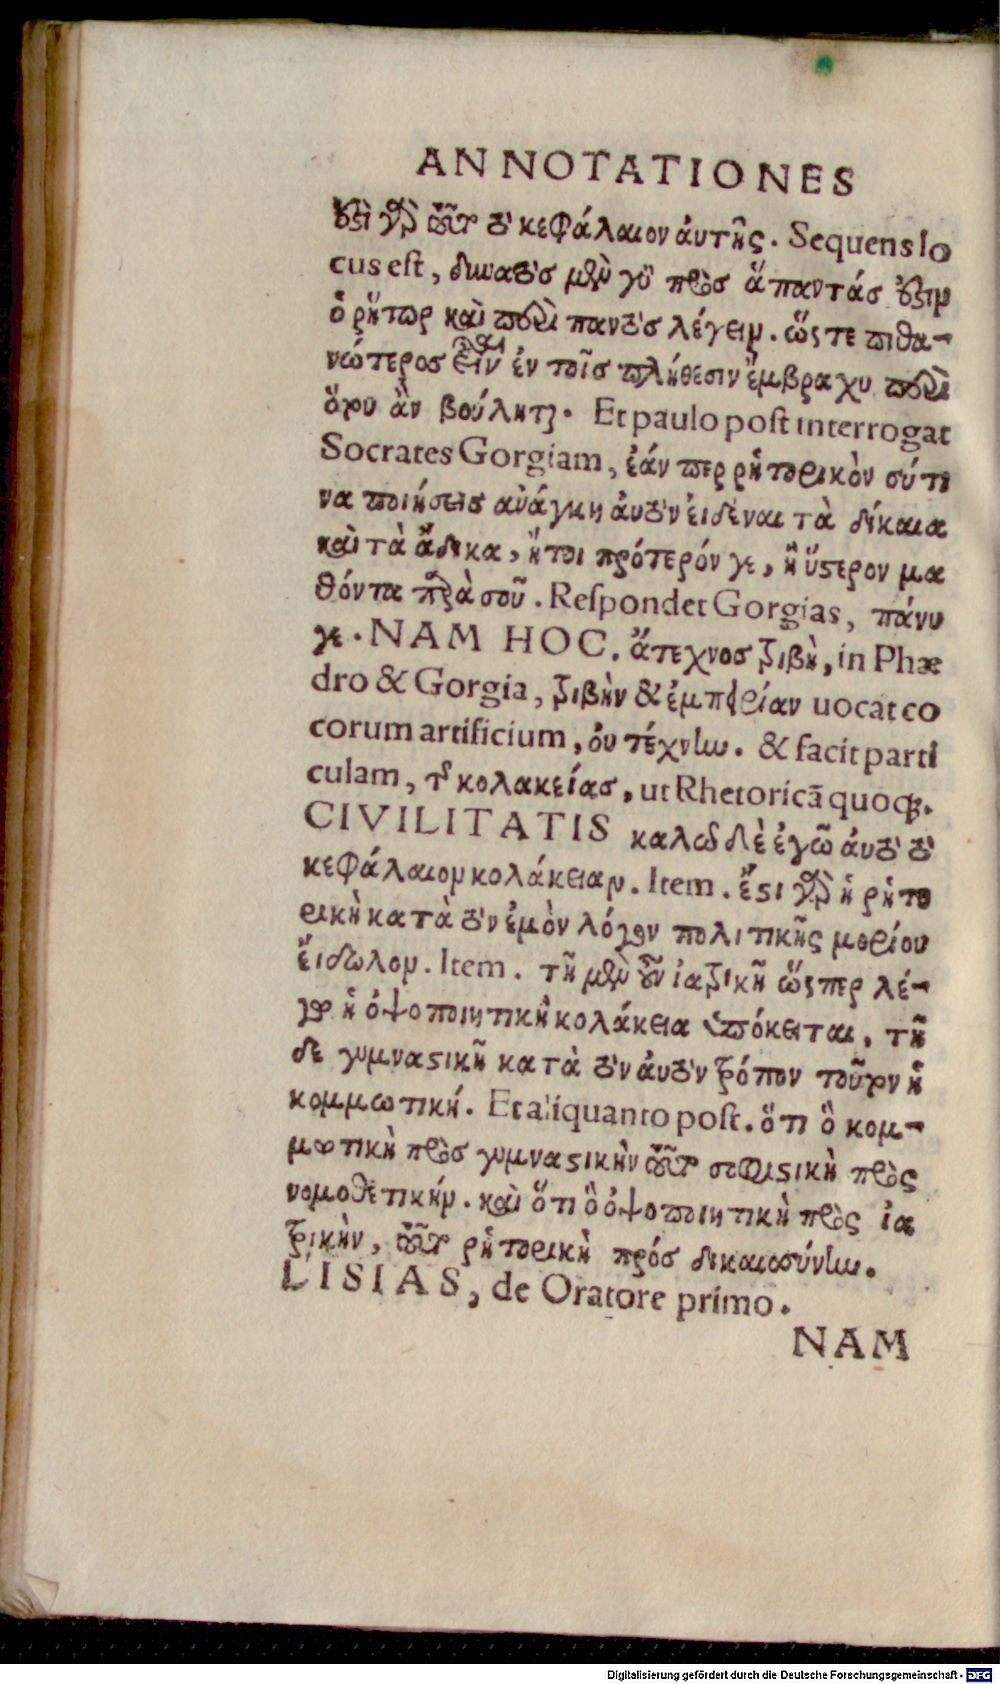 ANNOTATIONES
ἐστὶ γὰρ τοῦτο τὸ κεφάλαιον ἀυτῆς. Sequens lo
cus est, δυνατὸς μὲν γὰρ πρὸς ἅπαντάς ἐστιν
ὁ ῥήτωρ καὶ περὶ παντὸς λέγειν. ὥςτε πιθα-
νώτερος εἶναι ἐν τοῖς πλήθεσιν ἔμβραχυ περὶ
ὅτου ἂν βούληται. Et paulo post interrogat
Socrates Gorgiam, ἐάν περ ῥητορικὸν σύ τι
να ποιήσεις ἀνάγκη ἀυτὸν ἐιδέναι τὰ δίκαια
καὶ τὰ ἄδικα, ἤτοι πρότερόν γε, ἢ ὕστερον μα
θόντα παρὰ σοῦ. Respondet Gorgias, πάνυ
γε. NAM HOC. ἄτεχνος τριβὴ, in Phæ
dro & Gorgia, τριβὴν & ἐμπειρίαν uocat co
corum artificium, ὀυ τέχνην. & facit parti
culam, τῆς κολακείας, ut Rhetoricā quoq;.
CIVILITATIS καλῶ δὲ ἐγὼ ἀυτὸ τὸ
κεφάλαιον κολάκειαν. Item. ἔστι γὰρ ἡ ῥητο
ρικὴ κατὰ τὸν ἐμὸν λόγον πολιτικῆς μορίου
ἔιδωλον. Item. τῇ μὲν οὖν ἰατρικῇ ὥςπερ λέ-
γω ἡ ὀψοποιητικὴ κολάκεια ὑπόκειται, τῇ
δε γυμναστικῇ κατὰ τὸν ἀυτὸν τρόπον τοῦτον ἡ
κομμωτική. Et aliquanto post. ὅτι ὃ κομ-
μωτικὴ πρὸς γυμναστικὴν τοῦτο σοφιστικὴ πρὸς
νομοθετικήν. καὶ ὅτι ὃ ὀψοποιητικὴ πρὸς ἰα
τρικὴν, τοῦτο ῥητορικὴ πρός δικαιοσύνην.
LISIAS, de Oratore primo.
NAM
Digitalisierung gefördert durch die Deutsche Forschungsgemeinschaft - DFG